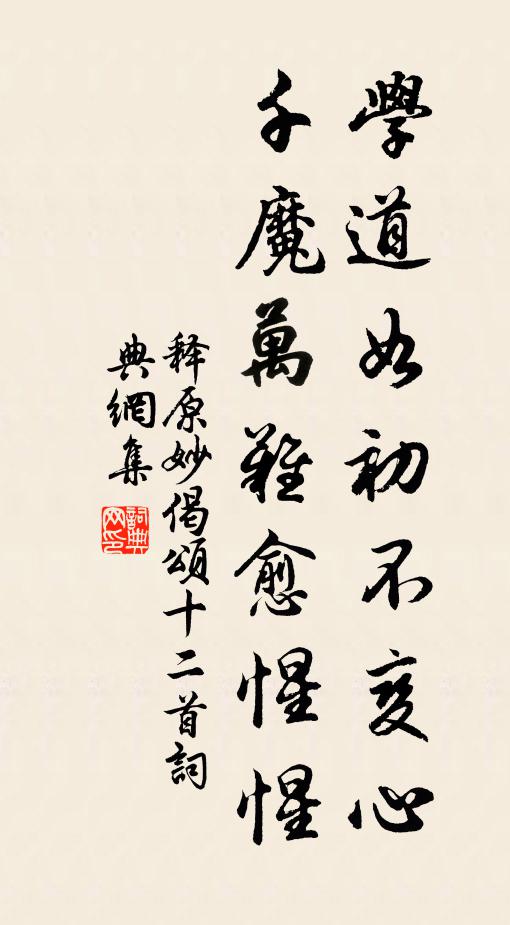 學道如初不變心
千魔萬難愈惺惺
释原妙偈頌十二首詞
典網集
詞典
网印